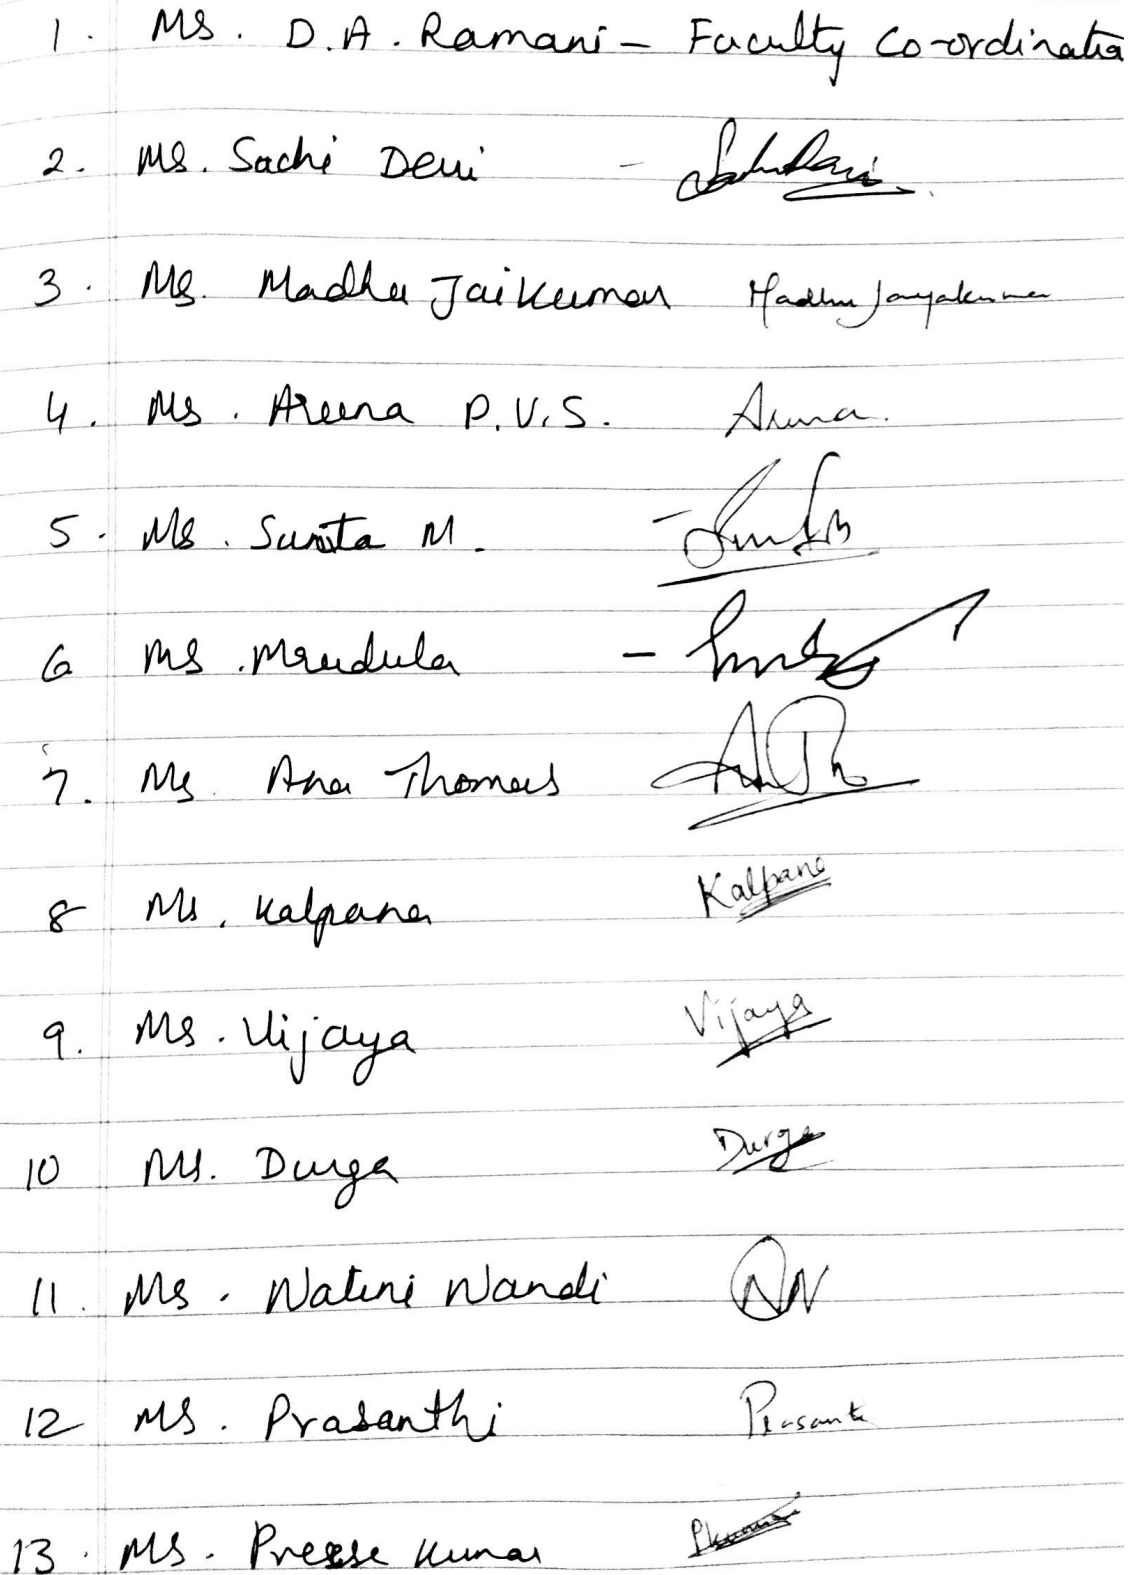 1. Ms. D.A. Ramani - Faculty Co-ordinator
2. Ms. Sachi Devi -
3. Ms. Madhu Jaikumar Madhu Jayakumar
4. Ms. Aruna P.V.S. Aruna.
5. Ms. Sunita M. -
6 Ms. Mrudula -
7. Ms. Ana Thomas
8 Ms. Kalpana Kalpana
9. Ms. Vijaya Vijaya
10 Ms. Durga Durga
11. Ms. Nalini Nandi NN
12 Ms. Prasanthi Prasanthi
13. Ms. Kumar